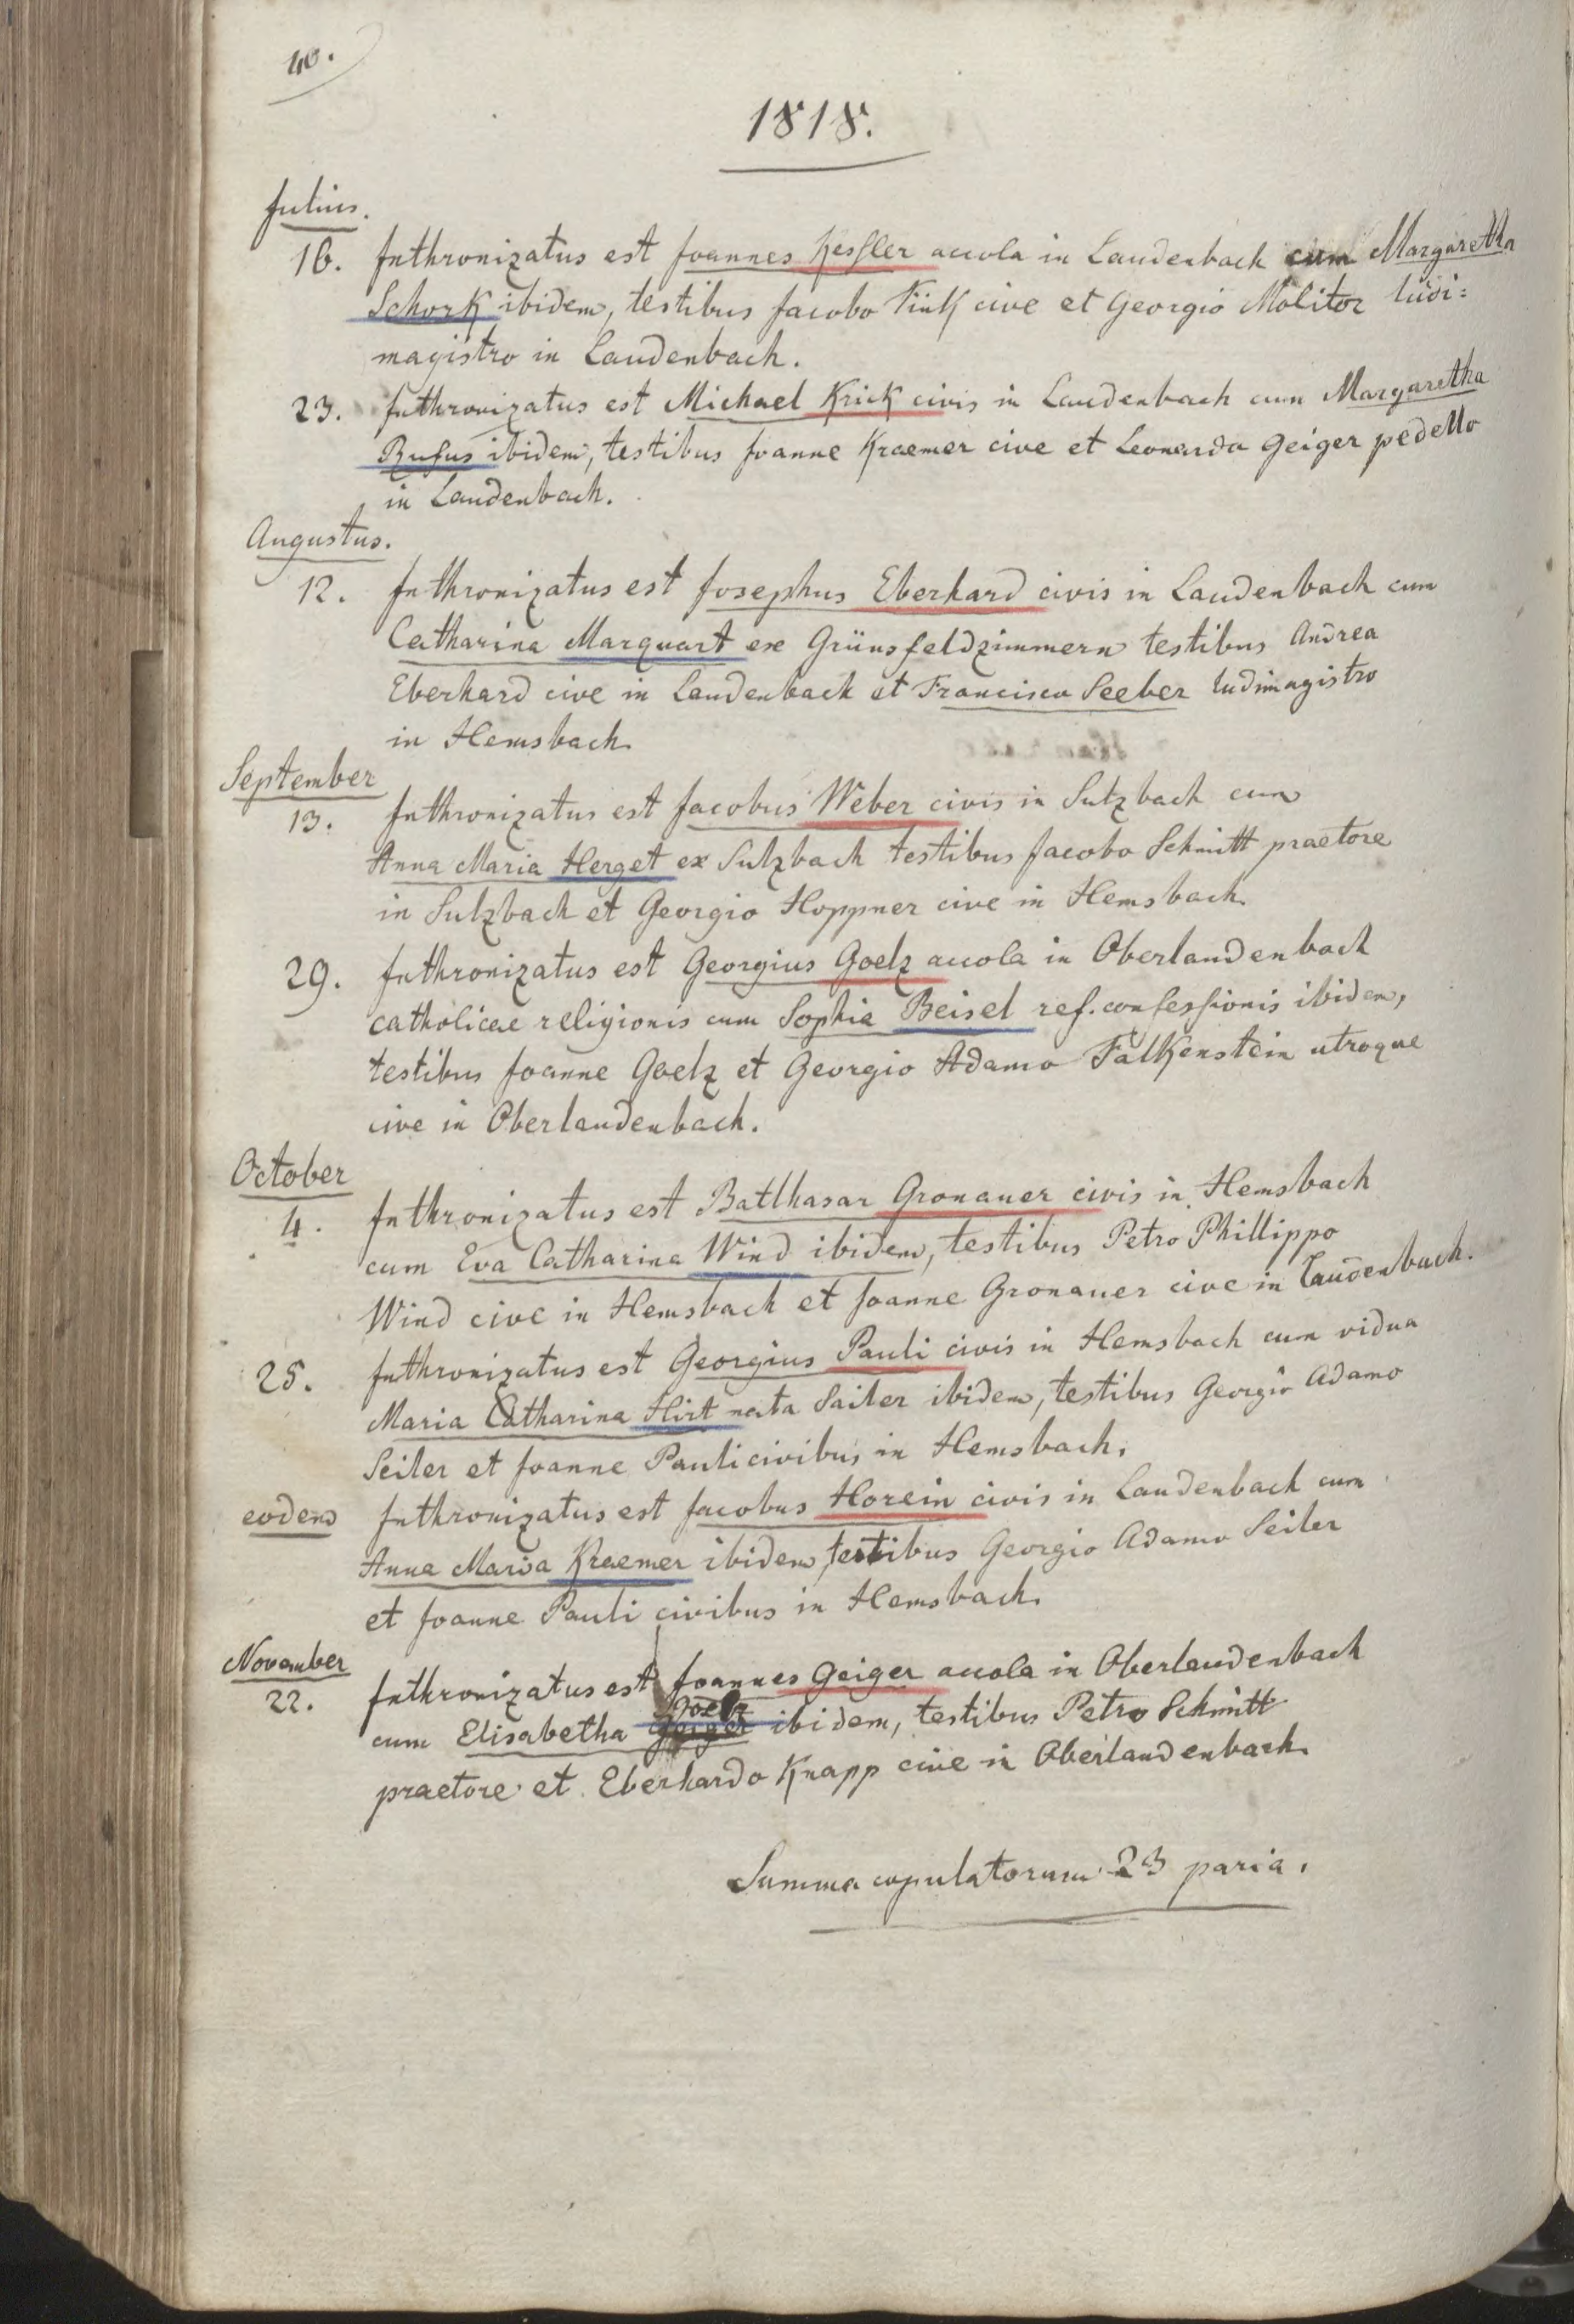 40.
1818.
Julius.
16. Inthronizatus est Joannes Kessler accola in Laudenbach cum Margaretha
Schork ibidem, testibus Jacobo Fink cive et Georgio Molitor ludi=
magistro in Laudenbach.
23. Inthronizatus est Michael Krick civis in Laudenbach cum Margaretha
Rufus ibidem, testibus Joanne Kraemer cive et Leonardo Geiger pedello
in Laudenbach.
Augustus.
12. Inthronizatus est Josephus Eberhard civis in Laudenbach cum
Catharina Marquart ex Grünsfeldzimmern testibus Andrea
Eberhard cive in Laudenbach et Francisco Seeber ludimagistro
in Hemsbach.
September
13. Inthronizatus est Jacobus Weber civis in Sulzbach cum
Anna Maria Herget ex Sulzbach testibus Jacobo Schmitt praetore
in Sulzbach et Georgio Hoppner cive in Hemsbach.
29. Inthronizatus est Georgius Goelz accola in Oberlaudenbach
catholicae religionis cum Sophia Beisel ref. confessionis ibidem,
testibus Joanne Goelz et Georgio Adamo Falkenstein utroque
cive in Oberlaudenbach.
October
4. Inthronizatus est Balthasar Gronauer civis in Hemsbach
cum Eva Catharina Wind ibidem, testibus Petro Phillippo
Wind cive in Hemsbach et Joanne Gronauer cive in Laudenbach.
25. Inthronizatus est Georgius Pauli civis in Hemsbach cum vidua
Maria Catharina Hirt nata Sailer ibidem, testibus Georgio Adamo
Seiler et Joanne Pauli civibus in Hemsbach.
eodem Inthronizatus est Jacobus Horein civis in Laudenbach cum
Anna Maria Kraemer ibidem, testibus Georgio Adamo Seiler
et Joanne Pauli civibus in Hemsbach.
November
22. Inthronizatus est Joannes Geiger accola in Oberlaudenbach
Goelz
cum Elisabetha Geiger ibidem, testibus Petro Schmitt
praetore et Eberhardo Knapp cive in Oberlaudenbach.
Summa copulatorum 23 paria.